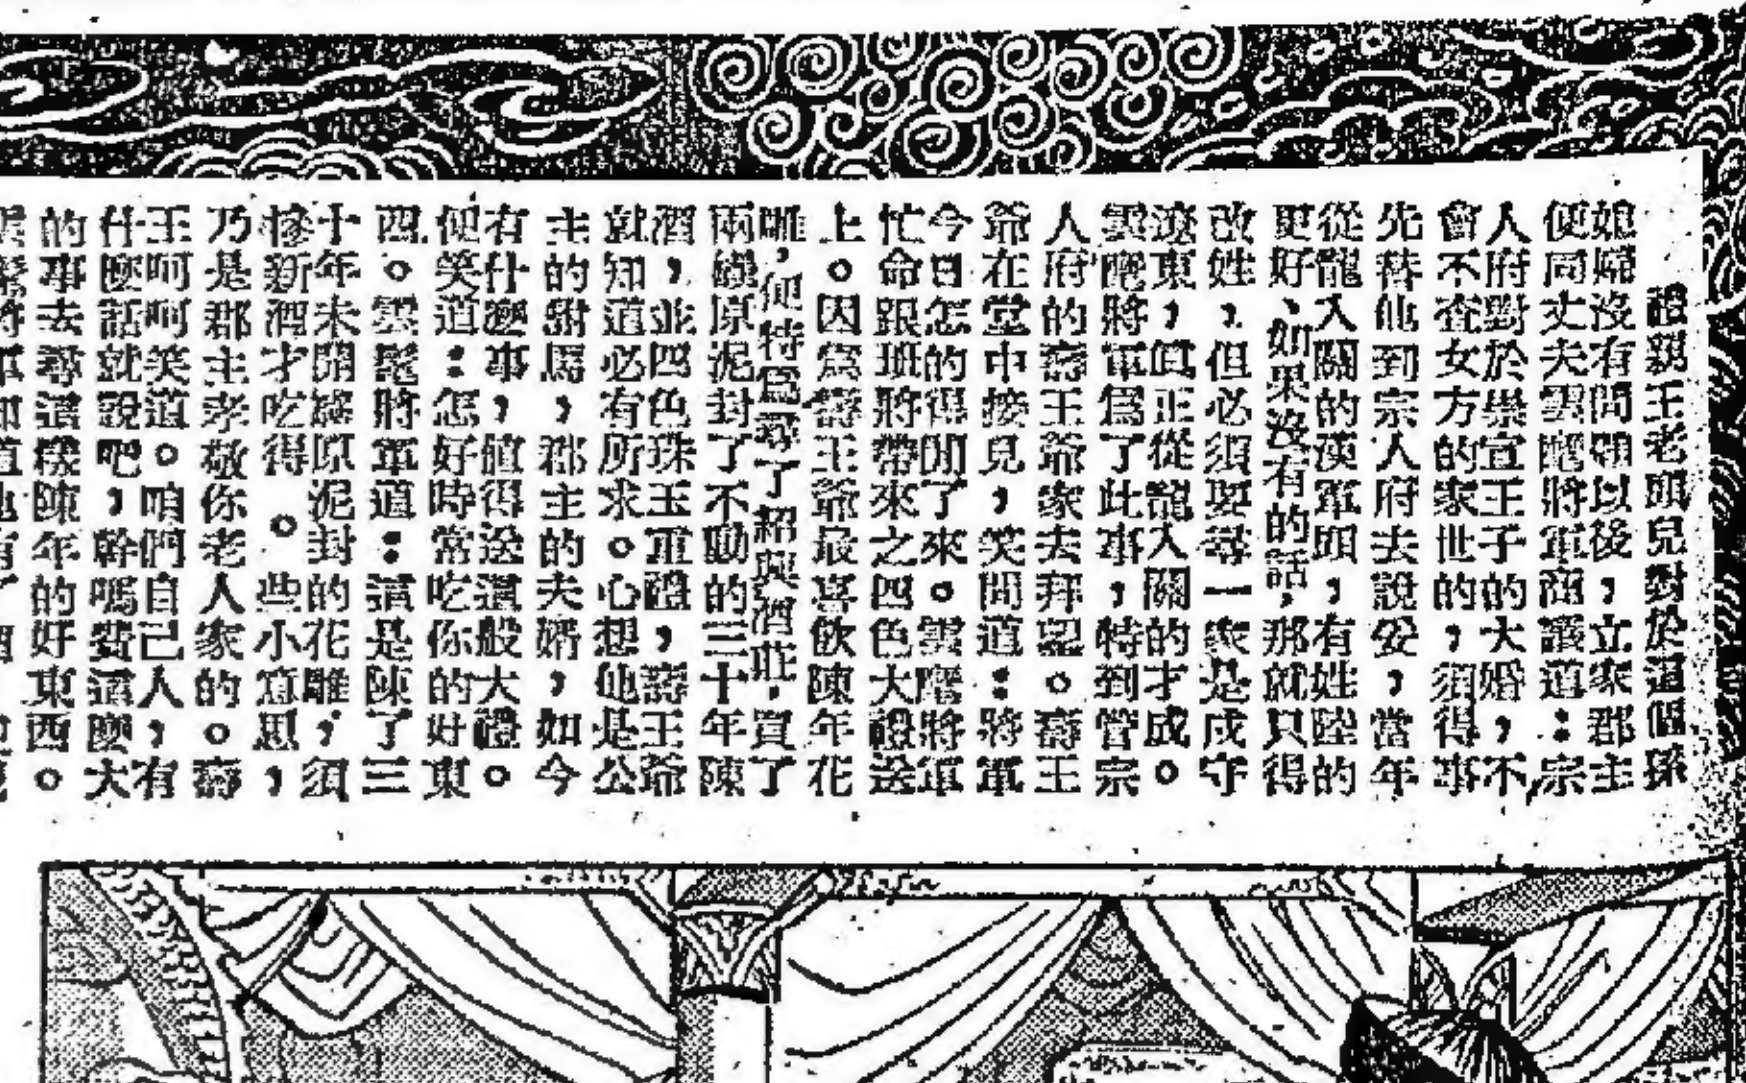 禮親王老頭兒對於這個孫
媳婦沒有問題以後，立家郡主
便同丈夫雲麾將軍商議道：宗
人府對於崇宣王子的大婚，不
會不查女方的家世的，須得事
先替他到宗人府去說妥，當年
從龍入關的漢軍旗，有姓陸的
更好、如果沒有的話，那就只得
改姓，但必須要尋一家是戍守
遼東，眞正從龍入關的才成。
雲麾將軍爲了此事，特到管宗
人府的壽王爺家去拜望。壽王
爺在堂中接見，笑問道：將軍
今日怎的得閒了來。雲麾將軍
忙命跟班將帶來之四色大禮送
上。因爲壽王爺最喜飲陳年花
雕，他特爲尋了紹興酒莊，買了
兩罎原泥封了不動的三十年陳
酒，並四色珠玉重禮，壽王爺
就知道必有所求。心想他是公
主的駙馬，郡主的夫婿，如今
有什麼事，値得送這般大禮。
便笑道：怎好時常吃你的好東
西。雲麾將軍道：這是陳了三
十年未開罎原泥封的花雕，須
摻新酒才吃得。。些小意思，
乃是郡主孝敬你老人家的。壽
王呵呵笑道。咱們自己人，有
什麼話就說吧，幹嗎費這麼大
的事去尋這樣陳年的好東西。